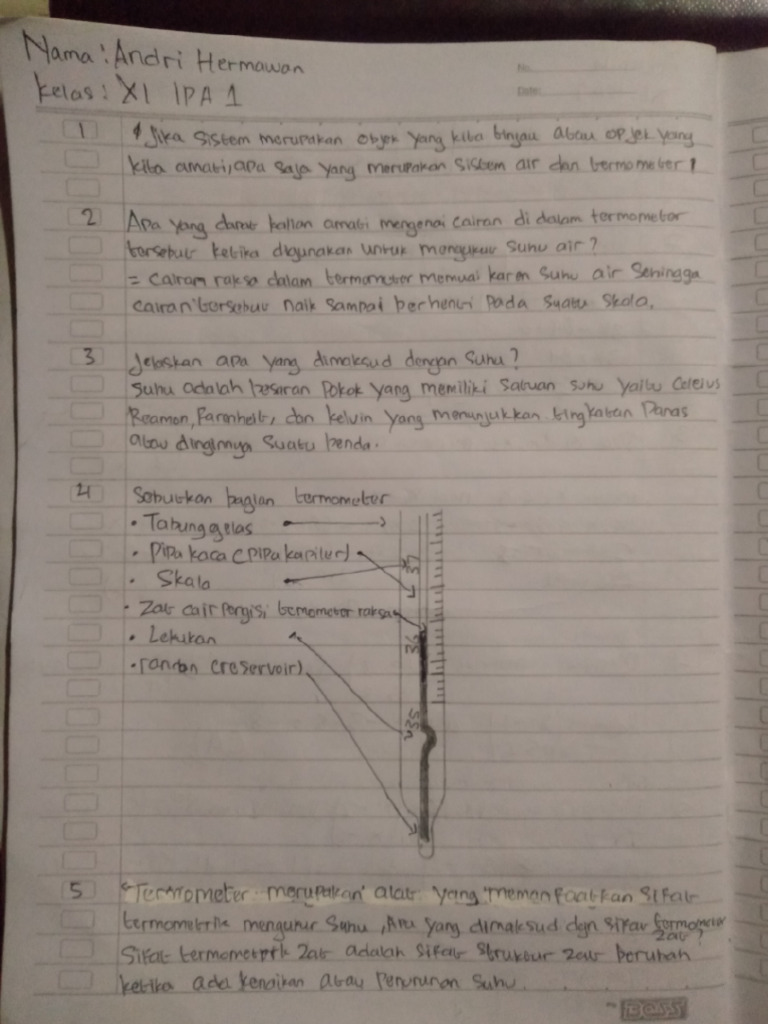 Nama: Andri Hermawan
Kelas: XI IPA 1
No.
Date:
1 Jika sistem merupakan objek yang kita tinjau atau opjek yang
kita amati, apa saja yang merupakan sistem air dan termometer!
2 Apa yang dapat kalian amati mengenai cairan di dalam termometer
tersebut ketika digunakan untuk mengukur suhu air?
= Cairam raksa dalam termometer memuai karen suhu air sehingga
cairan tersebut naik sampai berhenti pada suatu skala.
3 Jelaskan apa yang dimaksud dengan suhu?
Suhu adalah besaran pokok yang memiliki satuan suhu yaitu Celcius
Reamon, Farenheit, dan kelvin yang menunjukkan tingkatan panas
atau dinginnya suatu benda.
4 Sebutkan bagian termometer
• Tabung gelas
• Pipa kaca (pipa kapiler)
• Skala
• Zat cair pengisi termometer raksa
• Lekukan
• (reservoir)
37
36
35
5 "Termometer merupakan alat yang memanfaatkan sifat
termometrik mengukur suhu, Apa yang dimaksud dgn sifat termometer
zat?
Sifat termometrik zat adalah sifat struktur zat berubah
ketika ada kenaikan atau penurunan suhu.